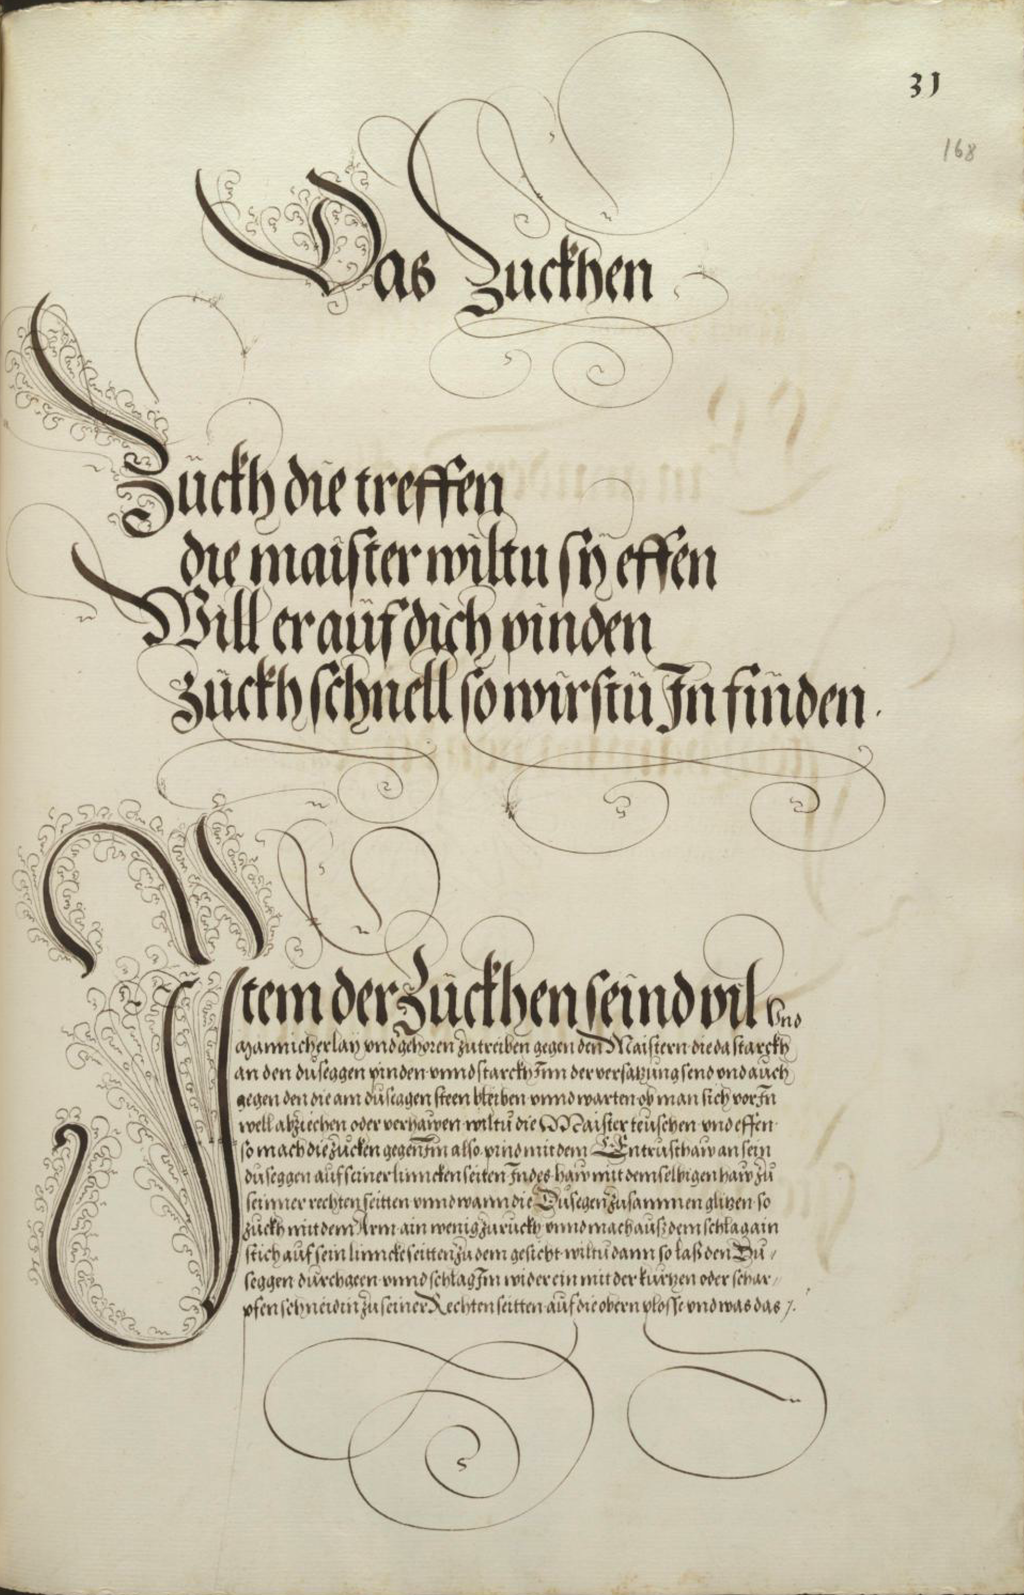 31
168
Das Zuckhen
Zückh die treffen
die maister wiltu sÿ effen
Will er aüf dich pinden
Zückh schnell so wirstü In finden.
Item der Zückhen seind vil vnd
Mannicherlaÿ vnd gehoren zutreiben gegen den Maistern die da starckh
an den duseggen pinden vnnd starckh Inn der versatzung send vnd auch
gegen den die am duseggen steen bleiben vnnd warten ob man sich vor In
well abziechen oder verhawen wiltu die Maister teuschen vnd effen
so mach die Zucken gegen Im also pind mit dem Entrusthaw an sein
duseggen auf seiner linncken seiten Indes haw mit demselbigen haw zu
seinner rechten seitten vnnd wann die Dusegen zusammen glitzen so
zuckh mit dem Arm ain wenig zuruckh vnnd mach auß dem schlag ain
stich auf sein linncke seitten zu dem gesicht wiltu dann so laß den Du-
seggen durchgeen vnnd schlag Im wider ein mit der kurtzen oder schar-
pfen schneidin zu seiner Rechten seitten auf die obern plosse vnd was das